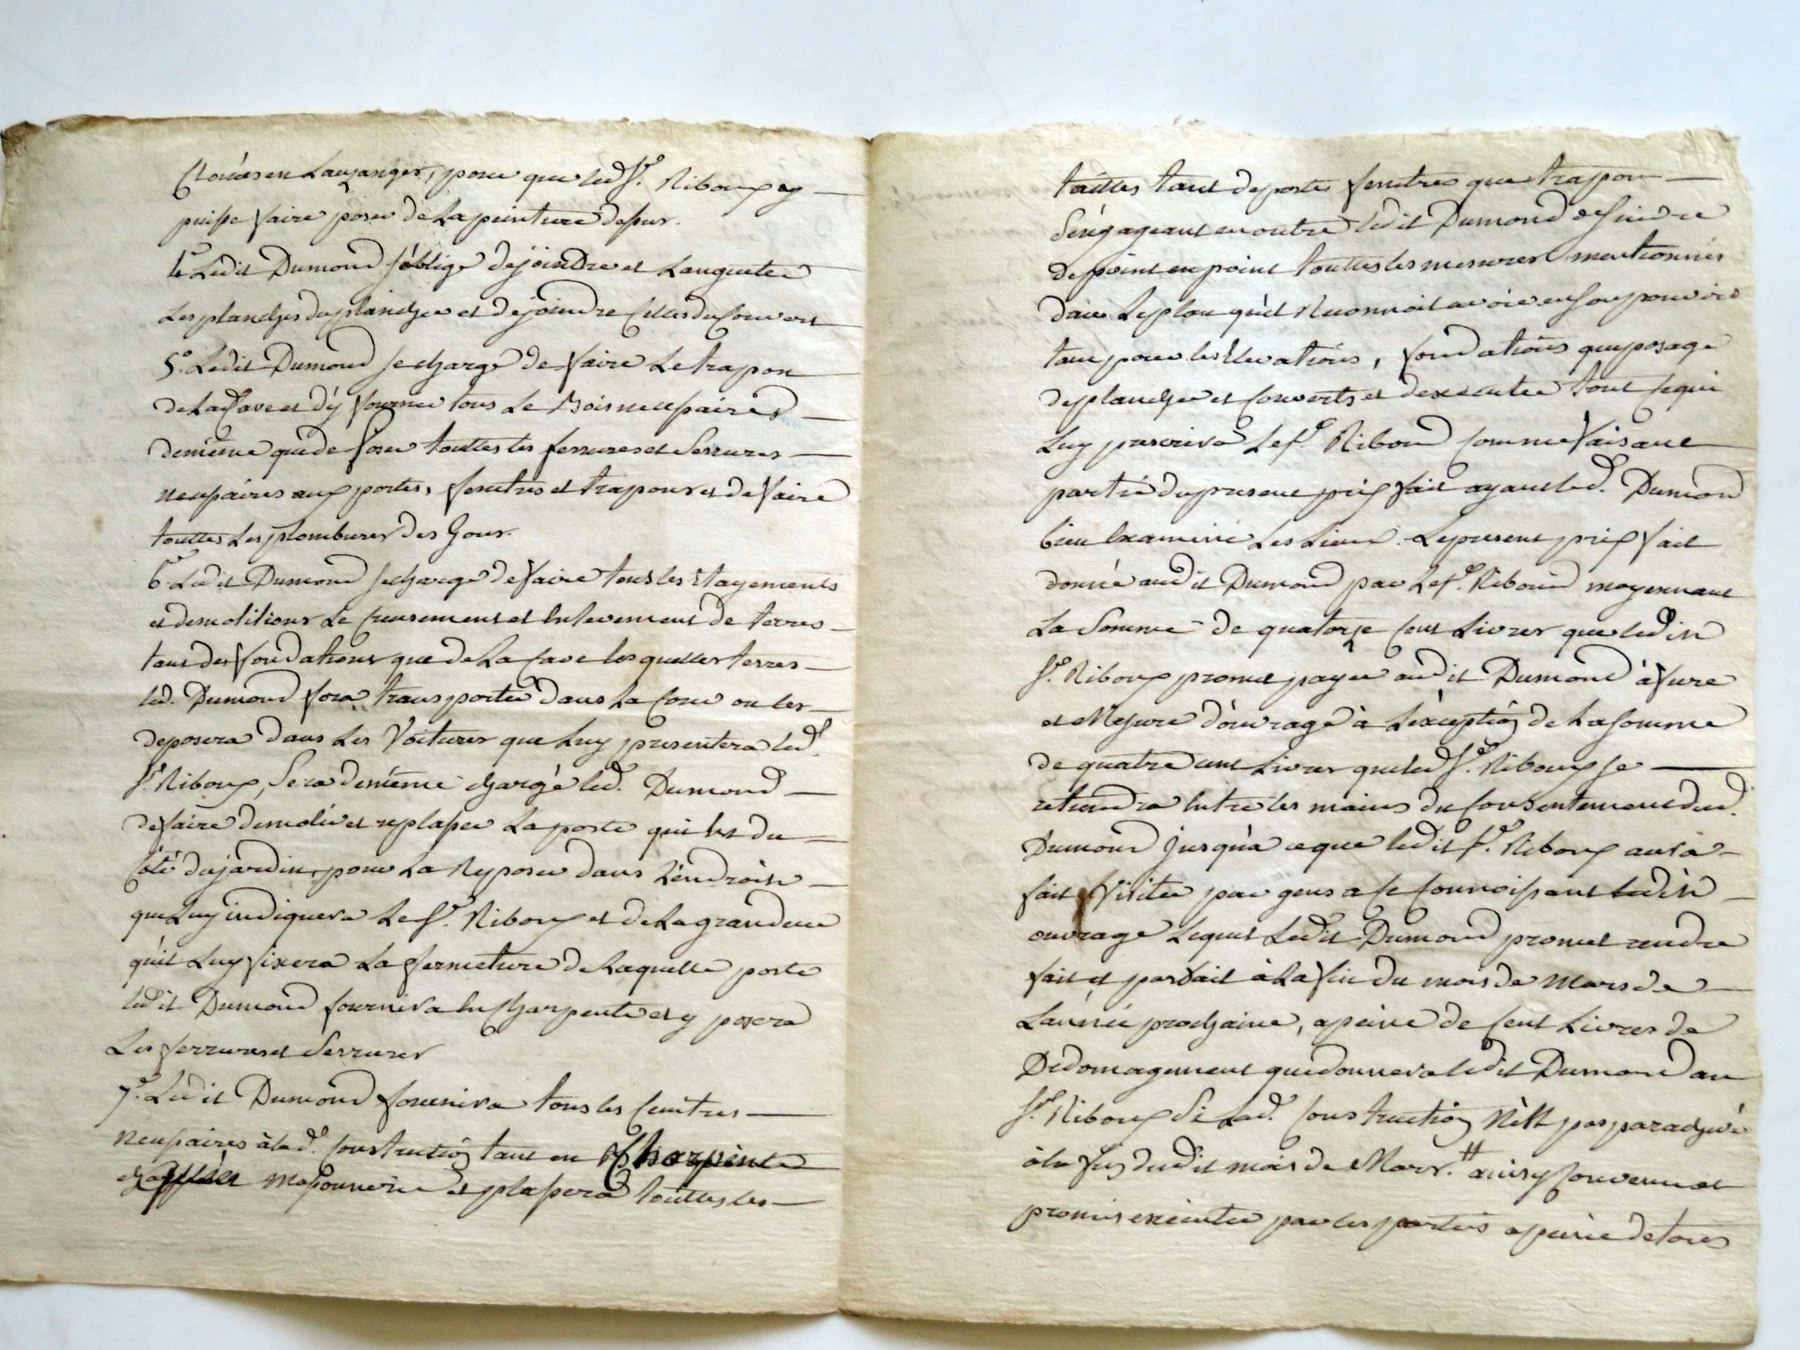 Clouées en Lauzanges, pour que led. Sr. Riboux y
puisse faire poser de La peinture dessus.
4e Ledit Dumond s'oblige de joindre et Langueter
Les planches du plancher et de joindre Celles du Couvert
5e. Ledit Dumond se charge de faire Le trapon
de La Cave et d'y fournir tous Le Bois necessaires
de même que de poser touttes les ferrures et Serrures
necessaires aux portes, fenetres et trapons et de faire
touttes Les plombures des Gours.
6e Ledit Dumond se charge de faire tous les Etayements
et demolitions Le Creusement et Enlevement de terres
tant des fondations que de La Cave les quelles terres
led. Dumond fera transporter dans La Cour ou les
deposera dans Les Voitures que Luy presentera led.
Sr. Riboux, Sera de même chargé led. Dumond
de faire demolir et replasser La porte qui est du
Côté du jardin, pour La Reposer dans L'endroit
que Luy indiquera Le Sr. Riboux et de La grandeur
qu'il Luy fixera La fermeture de Laquelle porte
ledit Dumond fournira En Charpente et y posera
Les ferrures et Serrures
7e. Ledit Dumond fournira tous les Ceintres
Necessaires à lad. Construction tant en Charpente
massonnerie et plassera touttes les
tailles tant de porte fenetres que trapon
S'engageant en outre ledit Dumond de suivre
de point en point touttes les mesures mentionnés
dans Le plan qu'il Reconnoit avoir en son pouvoir
tant pour les Elevations, fondations que posage
de plancher et Couverts et d'executer tout ce qui
Luy prescrira Le Sr. Riboud comme faisant
partie du present prix fait ayant led. Dumond
bien Examiné Les Lieux. Le present prix fait
donné audit Dumond par Le Sr. Riboud moyennant
La Somme de quatorze Cent Livres que ledit
Sr. Riboux promet payer audit Dumond à fure
et Mesure d'ouvrage à L'exception de La somme
de quatre cent Livres que led. Sr. Riboux se
retiendra Entre les mains du Consentement dud.
Dumond jusqu'à ce que ledit Sr. Riboux aura
fait Visiter par gens a ce Connoissant ledit
ouvrage Lequel Ledit Dumond promet rendre
fait et parfait à La fin du mois de Mars de
L'année prochaine, a peine de Cent Livres de
Dedomagement que donnera ledit Dumond au
Sr. Riboux Si Lad. Construction N'est pas parachevé
à la fin dudit mois de Mars. # ainsy Convenu et
promis executer par les parties a peine de tous